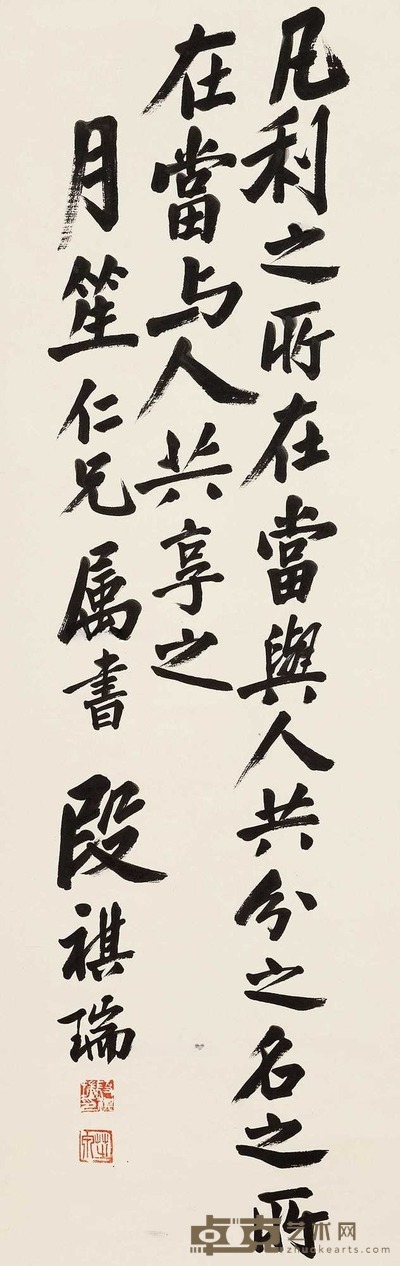 凡利之所在當與人共分之名之所
在當与人共享之
月笙仁兄属書 段祺瑞
卓克艺术网
zhuokearts.com